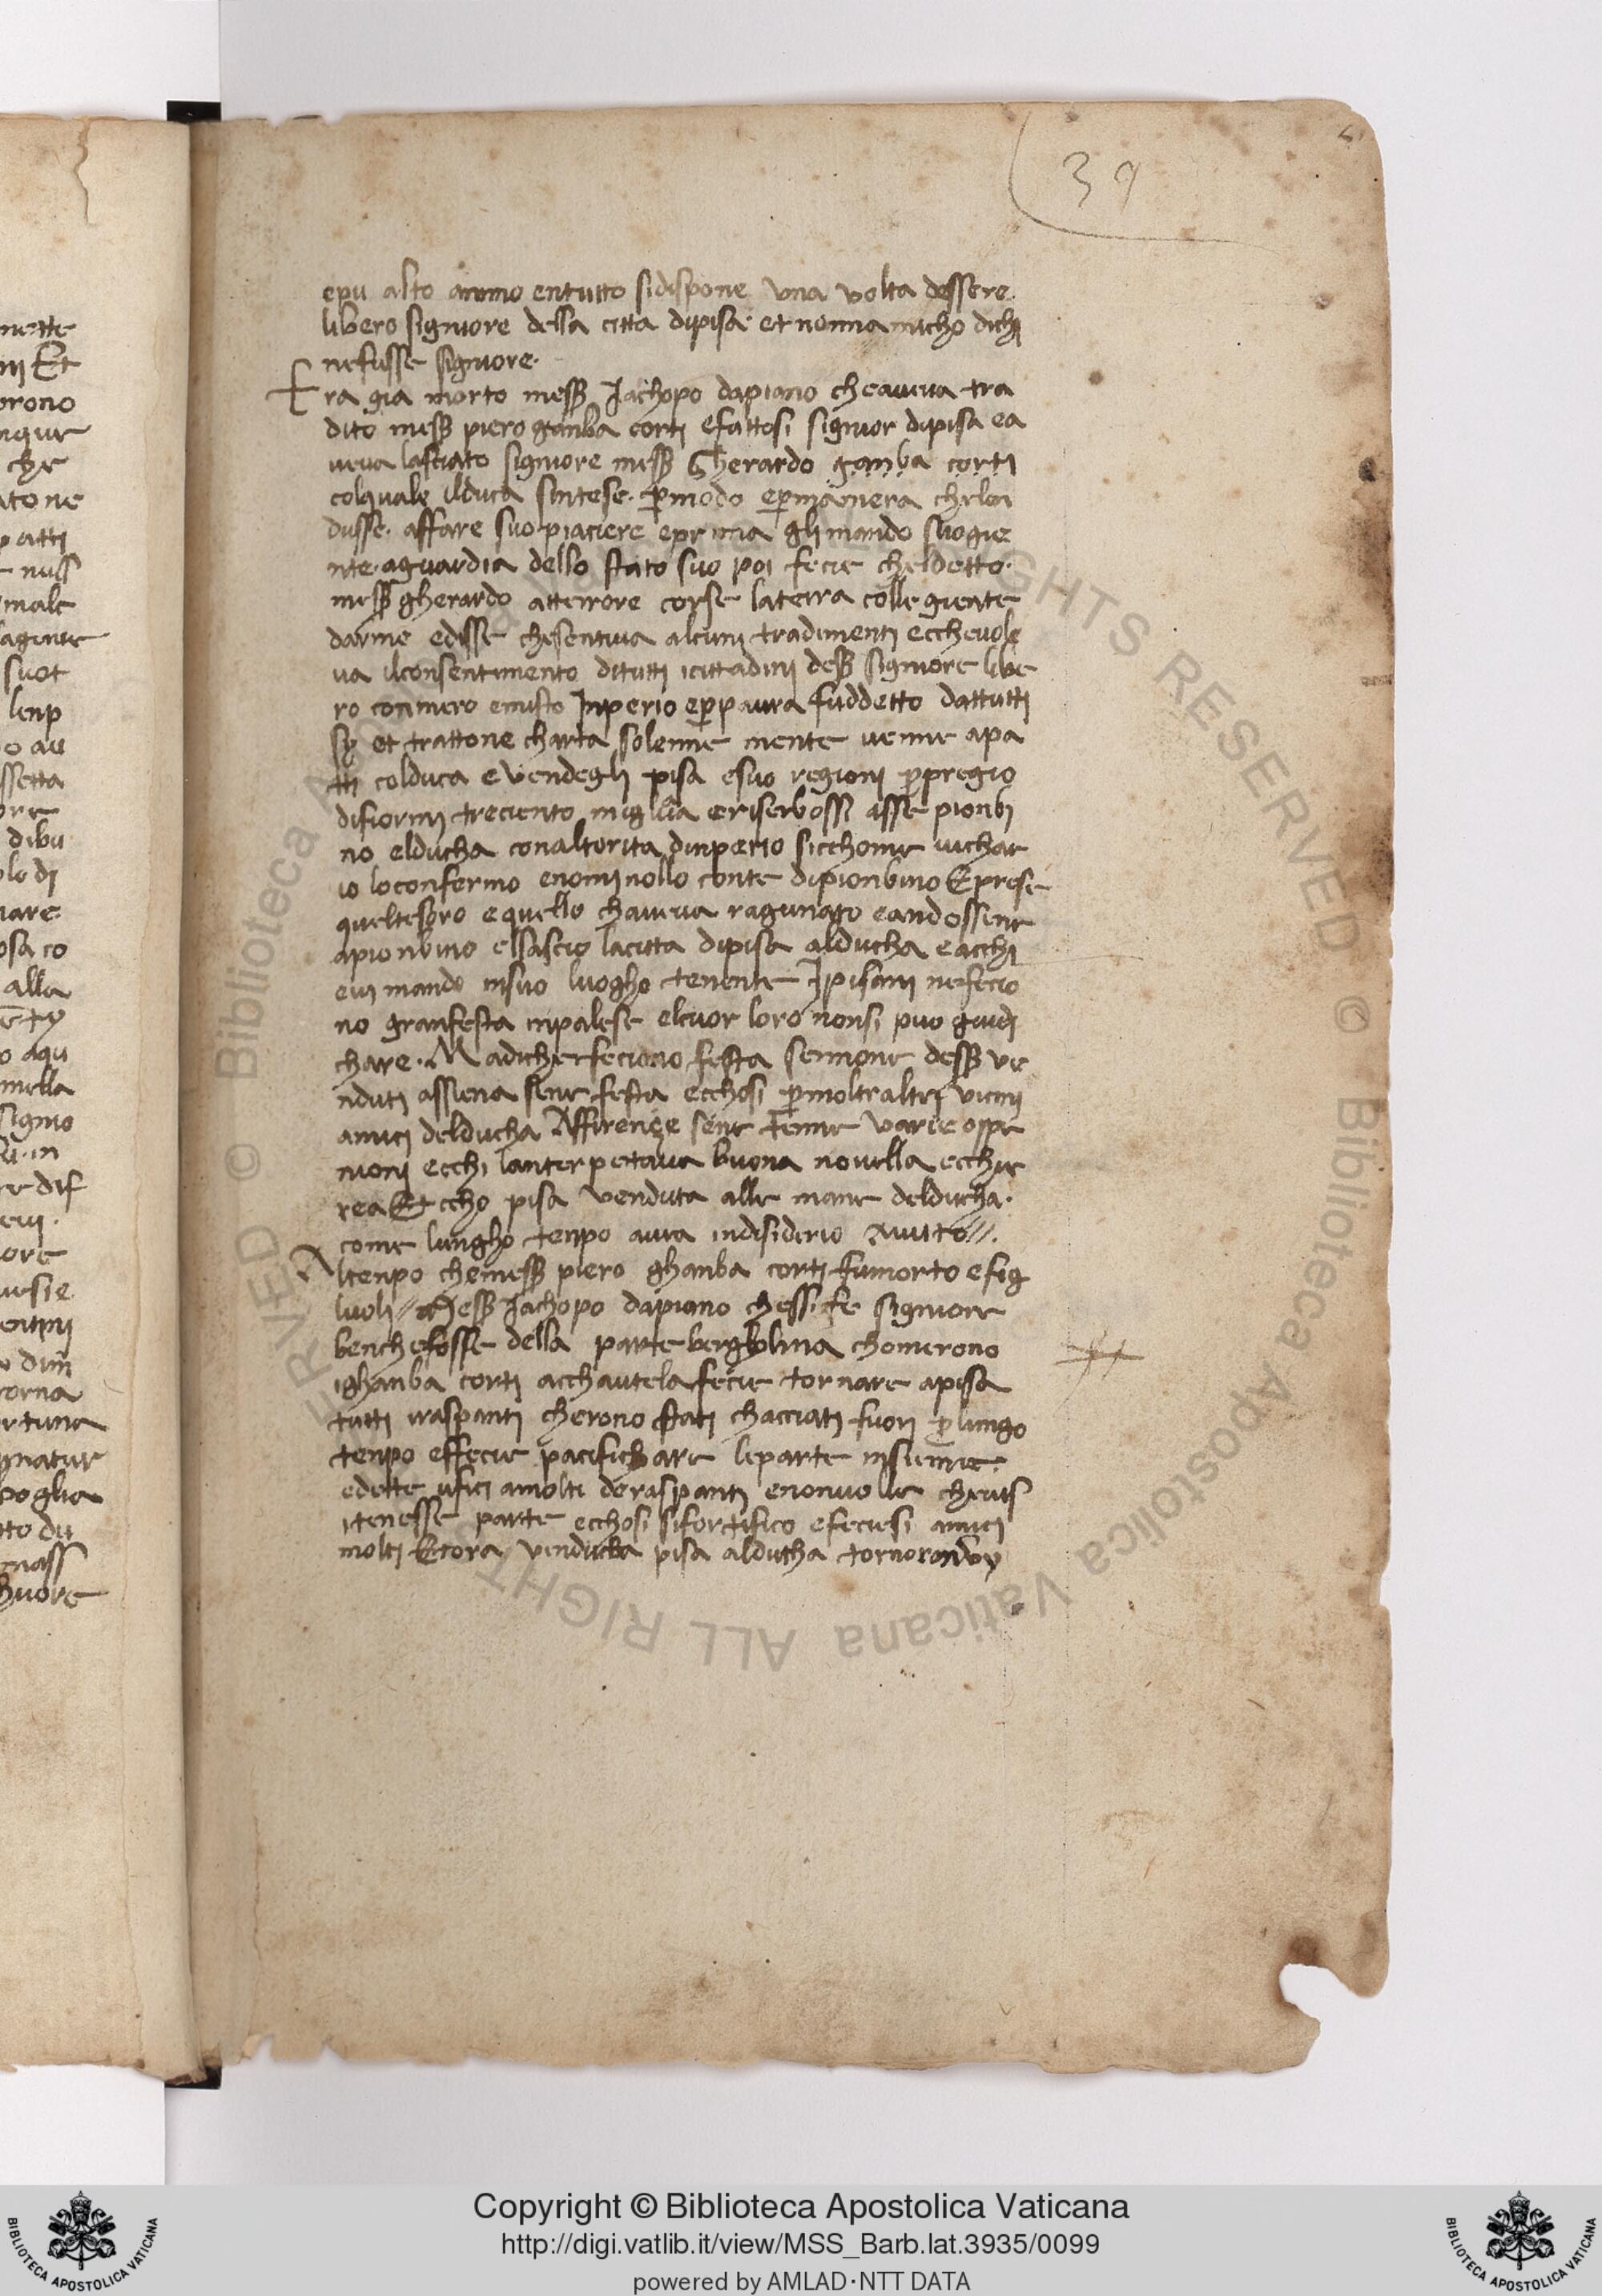 39
epu alto animo entutto sidispone una volta dessere
libero signiore della citta dipisa et nonna micho dichi
nefusse signiore
Era gia morto mess Jachopo dapiano cheaveva tra
dito mess piero ganba corti efattosi signior dipisa ea
veva lasciato signiore mess Gherardo ganba corti
colquale ilduca sintese permodo epermanera chelon
dusse affare suo piaciere eprima gli mando suo gie
nte aguardia dello stato suo poi fecie cheldetto
mess gherardo atterrore corse laterra colle giente
darme edisse chesentiva alcuni tradimenti ecchevole
va ilconsentimento ditutti icittadini dess signiore libe
ro conmero emisto Inperio eperpaura fuddetto dattutti
sy et trattone charta solenne mente venne apa
tti colduca evendegli pisa esuo regioni perpregio
difiorini treciento miglia eriserbossi asse pionbi
no elducha conaltorita dinperio sicchome vichar
io loconfermo enominollo conte dipionbino E prese
queltesoro equello chaveva ragunato eandossene
apionbino elsascio lacitta dipisa alducha eacchi
evi mando insuo luogho tenente Jpisani nefecio
no granfesta inpalese elcuor loro nonsi puo giudi
chare. Madichefeciono festa sennone dess ve
nduti assiena sene festa ecchosi permoltraltri vicini
amici delducha Affirençe sene tenne varie oppe
nioni ecchi lanterpertava buona novella ecchie
rea Et ccho pisa venduta alle mane delducha.
come lungho tenpo avea indisiderio auuto
Altenpo chemess piero ghanba corti fumorto efig
luoli Mess Jachopo dapiano chessife signiore
benchefosse della parte bergholina chomerono
ighanba corti acchautela fecie tornare apisa
tutti iraspanti cherono stati chacciati fuori perlungo
tenpo effecie pacifichare leparte insieme
edette ufici amolti deraspanti enonvolle chevis
itenesse parte ecchosi sifortifico efeciesi amici
molti Etora venducha pisa alducha tornorono
Copyright © Biblioteca Apostolica Vaticana
http://digi.vatlib.it/view/MSS_Barb.lat.3935/0099
powered by AMLAD·NTT DATA